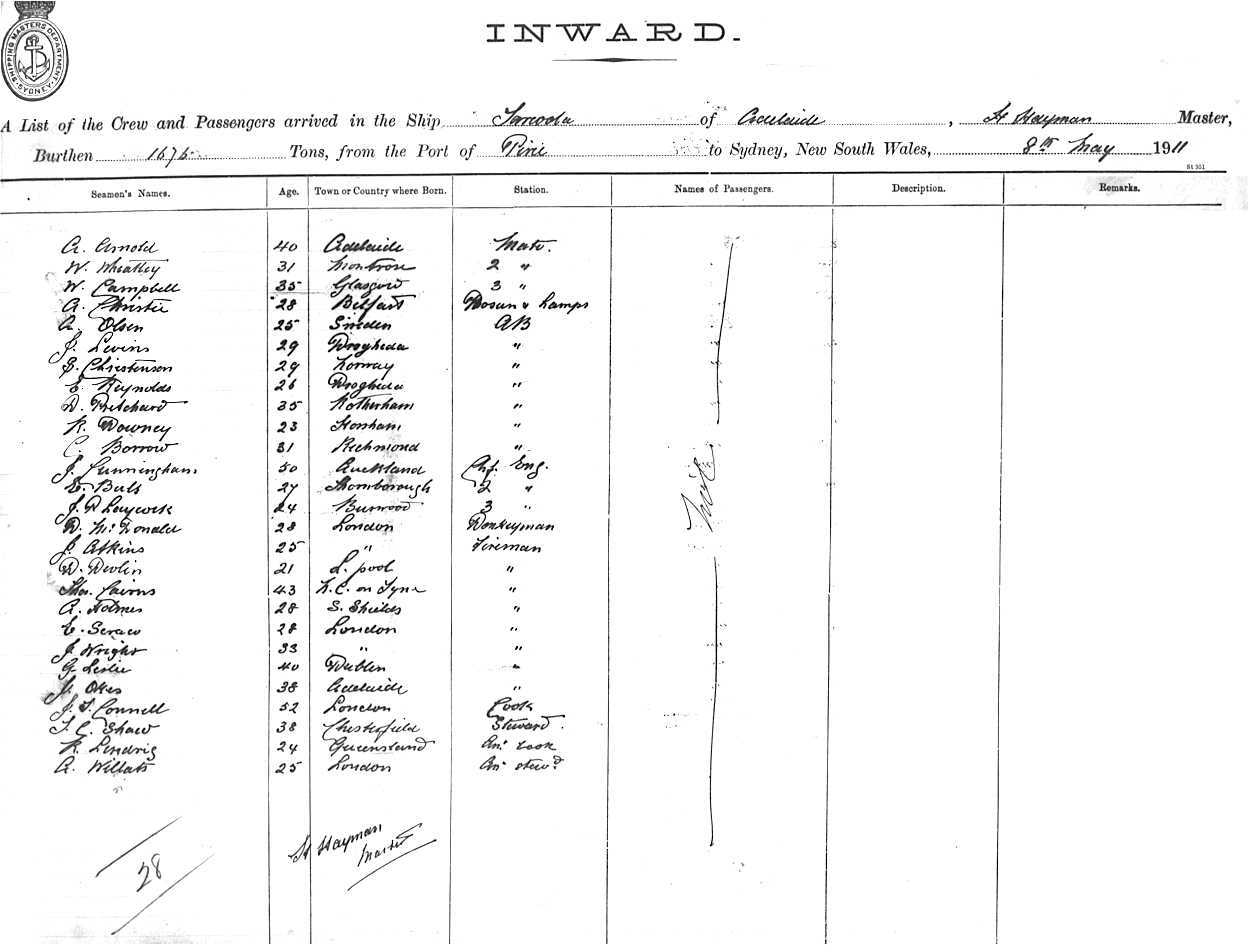 SHIPPING MASTERS DEPARTMENT SYDNEY
INWARD.
A List of the Crew and Passengers arrived in the Ship of Adelaide, H Hayman Master,
Burthen 1676 Tons, from the Port of Pirie to Sydney, New South Wales, 8th May 1911
St 351
Seamen's Names. Age. Town or Country where Born. Station. Names of Passengers. Description. Remarks.
A. Arnold 40 Adelaide Mate.
W. Wheatley 31 Montrose 2 "
W. Campbell 35 Glasgow 3 "
A. Christie 28 Belfast Bosun & Lamps
A. Olsen 25 Sweden AB
J. Levins 29 Drogheda "
Christenson 29 Norway "
E. Reynolds 26 Drogheda "
D. Pritchard 35 Rotherham "
R. Downey 23 Horsham "
C. Borrow 31 Richmond "
J. Cunningham 50 Auckland Chf. Eng.
27 Thornborough 2 "
J. D 24 Burwood 3 "
D. McDonald 28 London Donkeyman
J. Atkins 25 " Fireman
D. Devlin 21 L.pool "
Thos. Cairns 43 N.C. on Tyne "
A. Holmes 28 S. Shields "
E. 28 London "
J. Wright 33 " "
G. Leslie 40 Dublin "
J. Okes 38 Adelaide "
J. T. Connell 52 London Cook
T. C. Shaw 38 Chesterfield Steward.
R. 24 Queensland An. cook
A. Willats 25 London An. stewd
Nil
28
H Hayman
Master